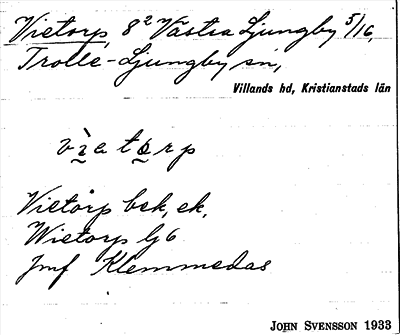 Vietorp, 8² Västra Ljungby 5/16,
Trolle-Ljungby sn,
Villands hd, Kristianstads län
vìatorp
Vietorp bek, ek,
Wietorp lj6
Jmf Klemmedas
JOHN SVENSSON 1933